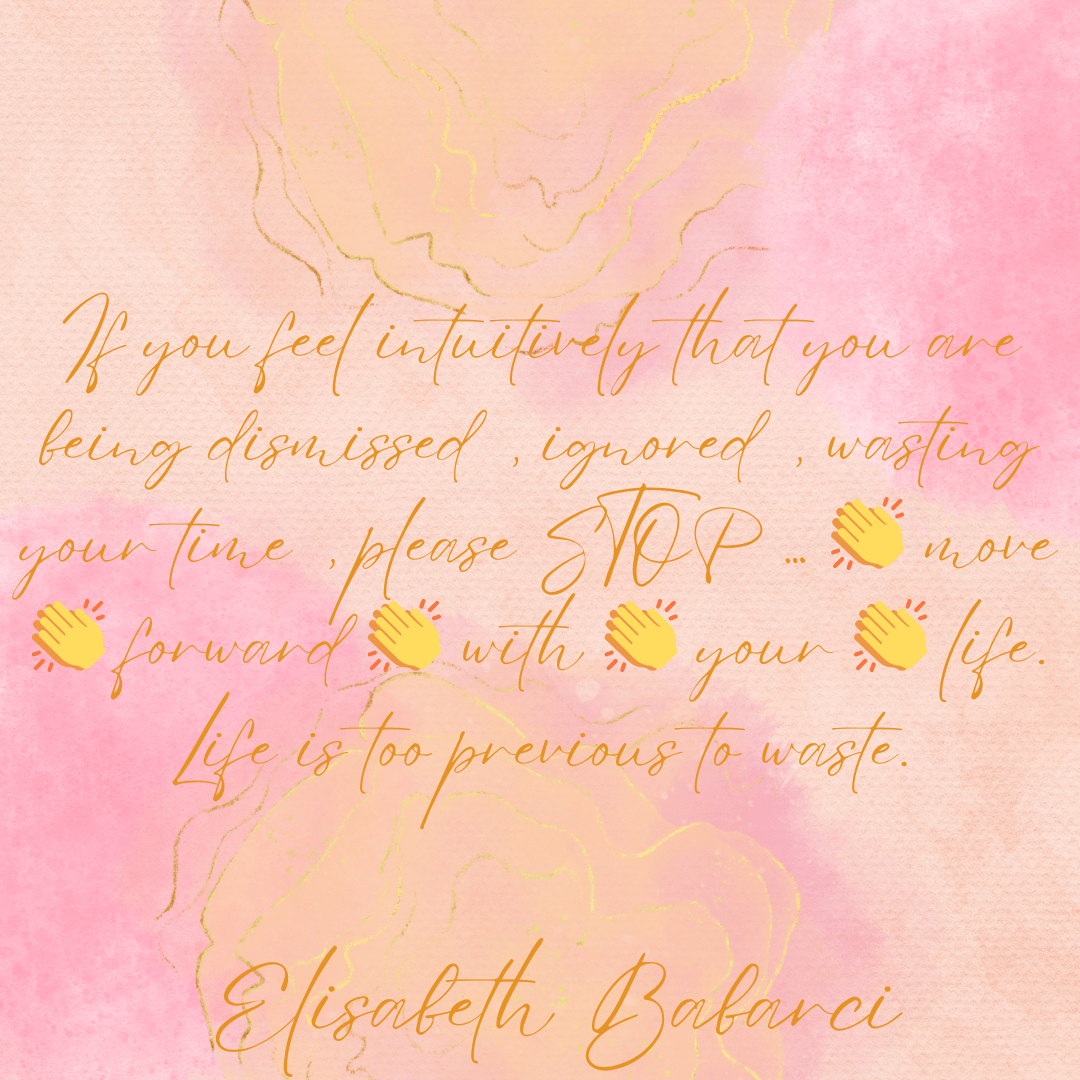 If you feel intuitively that you are
being dismissed , ignored , wasting
your time , please STOP ... 👏 more
👏 forward 👏 with 👏 your 👏 life.
Life is too previous to waste.
Elisabeth Babarci